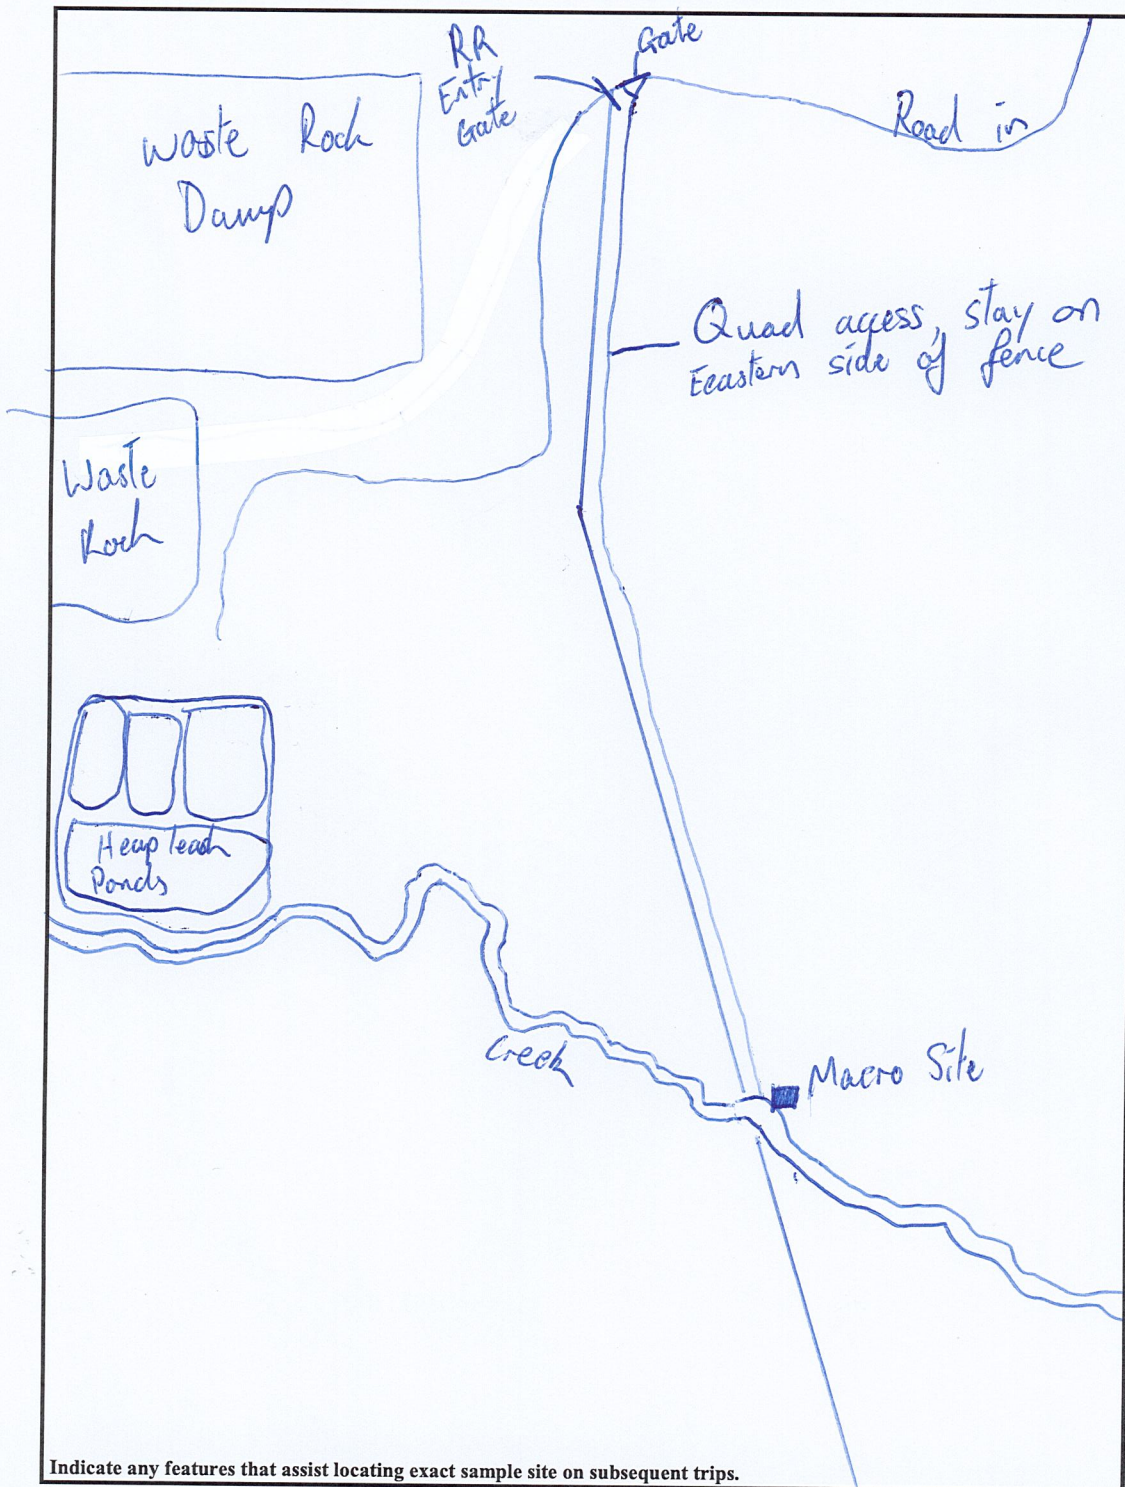 RR
Entry
Gate
Gate
Road in
Waste Rock
Damp
Quad access, stay on
Eeastern side of fence
Waste
Rock
Heap leach
Ponds
Creek
Macro Site
Indicate any features that assist locating exact sample site on subsequent trips.